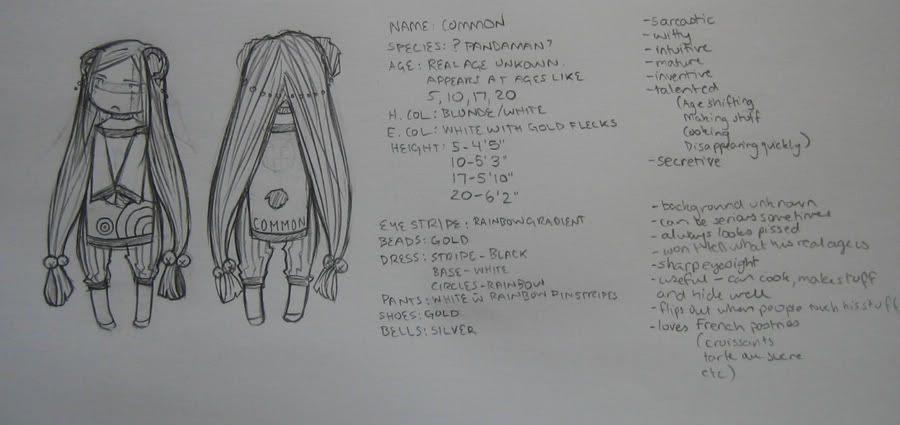 COMMON
NAME: COMMON
SPECIES: ? PANDAMAN?
AGE: REAL AGE UNKOWN.
APPEARS AT AGES LIKE
5, 10, 17, 20
H. COL: BLUNDE/WHITE
E. COL: WHITE WITH GOLD FLECKS
HEIGHT: 5-4'5"
10-5'3"
17-5'10"
20-6'2"
EYE STRIPE: RAINBOW GRADIENT
BEADS: GOLD
DRESS: STRIPE - BLACK
BASE - WHITE
CIRCLES - RAINBOW
PANTS: WHITE W RAINBOW PINSTRIPES
SHOES: GOLD
BELLS: SILVER
- sarcastic
- witty
- intuitive
- mature
- inventive
- talented
(Age shifting
Making stuff
Cooking
Disappearing quickly)
- secretive
- background unknown
- can be serious sometimes
- always looks pissed
- won't tell what his real age is
- sharp eyesight
- useful - can cook, make stuff
and hide well
- flips out when people touch his stuff
- loves French pastries
(croissants
tarte au sucre
etc)